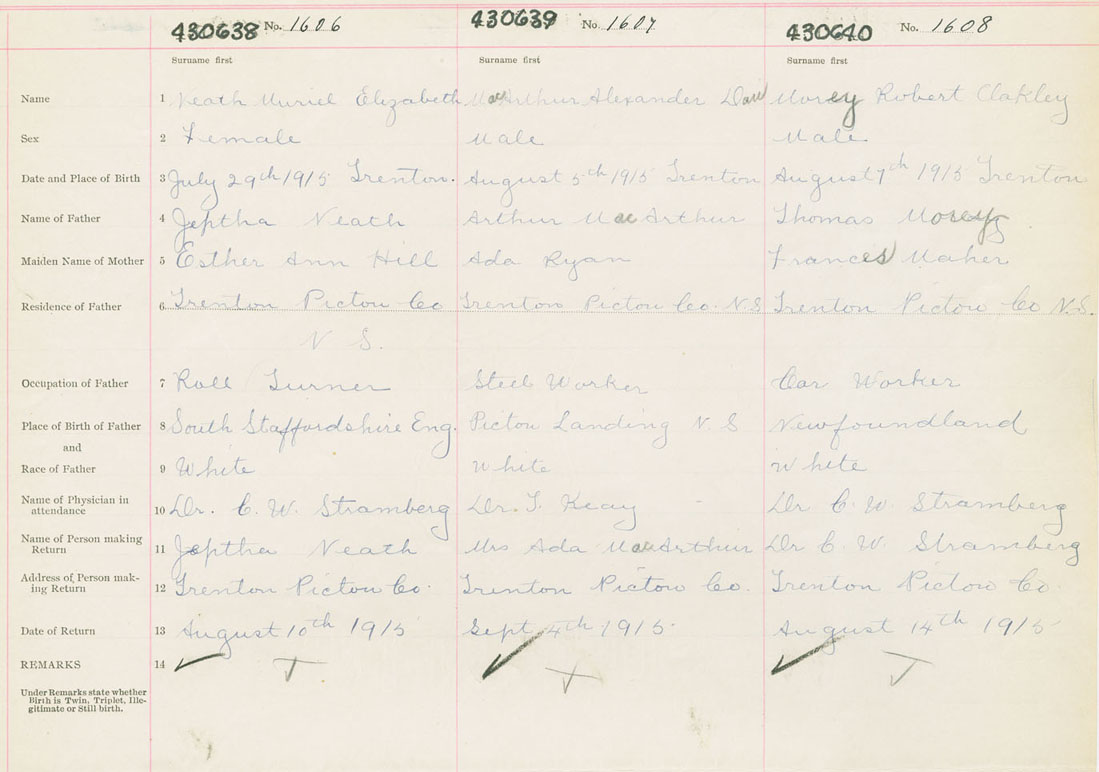 430638 No. 1606 430639 No. 1607 430640 No. 1608
Surname first Surname first Surname first
Name 1 Neath Muriel Elizabeth MacArthur Alexander Morey Robert Oakley
Sex 2 Female Male Male
Date and Place of Birth 3 July 29th 1915 Trenton. August 5th 1915 Trenton August 7th 1915 Trenton
Name of Father 4 Jeptha Neath Arthur MacArthur Thomas Morey
Maiden Name of Mother 5 Esther Ann Hill Ada Ryan Frances Maher
Residence of Father 6 Trenton Pictou Co Trenton Pictou Co. N.S Trenton Pictou Co N.S.
N S.
Occupation of Father 7 Roll Turner Steel Worker Car Worker
Place of Birth of Father 8 South Staffordshire Eng. Pictou Landing N. S Newfoundland
and
Race of Father 9 White White White
Name of Physician in
attendance 10 Dr. C. W. Stramberg Dr. T. Keay Dr C. W. Stramberg
Name of Person making
Return 11 Jeptha Neath Mrs Ada MacArthur Dr C. W. Stramberg
Address of Person mak-
ing Return 12 Trenton Pictou Co. Trenton Pictou Co. Trenton Pictou Co.
Date of Return 13 August 10th 1915 Sept 4th 1915 August 14th 1915
REMARKS 14
Under Remarks state whether
Birth is Twin, Triplet, Ille-
gitimate or Still birth.